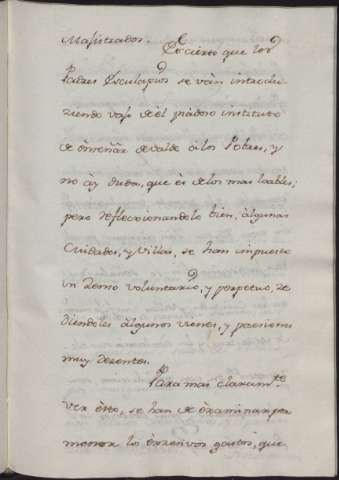 Magistrados.
Es cierto que los
Padres Esculapios se ván introdu-
ciendo vajo de él piádoso instituto
de enseñár de valde á los Pobres, y
no áy duda, que és de los mas loables;
pero refleccionandolo bien, algunas
Ciudades, y Villas, se han impuesto
un Censo voluntario, y perpetuo, ce
diendoles algunos vienes, y posesiones
muy decentes.
Para mas claramte
ver ésto, se han de éxaminar por
menor los excesivos gastos, que